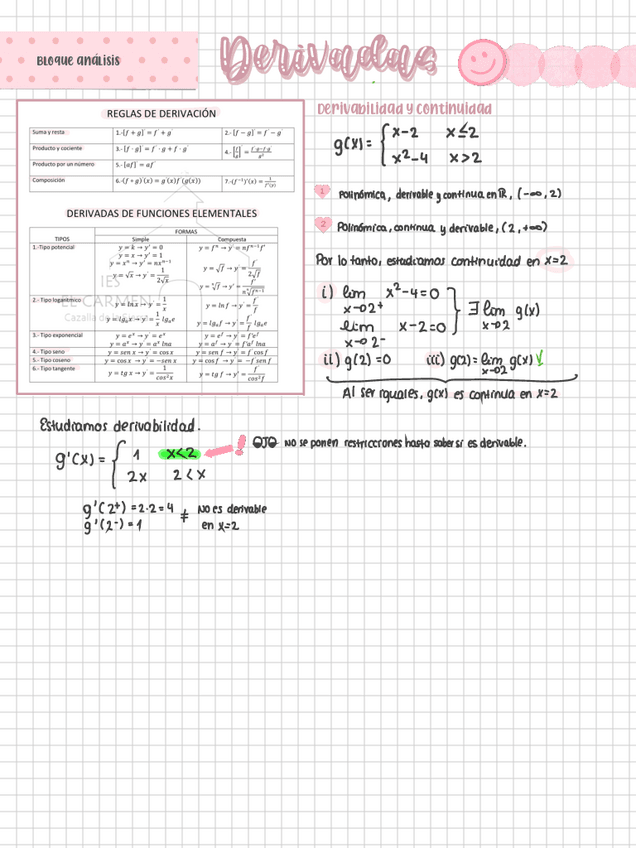 BLOQUE ANÁLISIS
Derivadas
REGLAS DE DERIVACIÓN
Suma y resta 1.-[f + g]' = f' + g' 2.- [f − g]' = f' − g'
Producto y cociente 3.-[f · g]' = f' · g + f · g' 4.-
Producto por un número 5.-[af]' = af'
Composición 6.-(f ∘ g)'(x) = g'(x)f'(g(x)) 7.-(f⁻¹)'(x) =
DERIVADAS DE FUNCIONES ELEMENTALES
TIPOS FORMAS
Simple Compuesta
1.-Tipo potencial y = k → y' = 0 y = fⁿ → y' = nfⁿ⁻¹f'
y = x → y' = 1
y = xⁿ → y' = nxⁿ⁻¹
y = √x → y' = 1/2√x y = √f → y' = f'/2√f
2.- Tipo logarítmico y = lnx → y' = 1/x y = lnf → y' = f'/f
y = lgₐx → y' = 1/x lgₐe y = lgₐf → y' = f'/f lgₐe
3.- Tipo exponencial y = eˣ → y' = eˣ y = eᶠ → y' = f'eᶠ
y = aˣ → y' = aˣ lna y = aᶠ → y' = f'aᶠ lna
4.- Tipo seno y = sen x → y' = cosx y = sen f → y' = f' cosf
5.- Tipo coseno y = cosx → y' = −sen x y = cosf → y' = −f' senf
6.- Tipo tangente y = tg x → y' = 1/cos²x y = tg f → y' = f'/cos²f
IES
EL CARMEN
Cazalla de
Derivabilidad y continuidad
g(x) = { x-2 x≤2
x²-4 x>2
1 Polinómica, derivable y continua en ℝ, (-∞, 2)
2 Polinómica, continua y derivable, (2, +∞)
Por lo tanto, estudiamos continuidad en x=2
i) lim x→2⁺ x²-4=0
lim x→2⁻ x-2=0 } ∃ lim x→2 g(x)
ii) g(2)=0 iii) g(2)= lim x→2 g(x) √
Al ser iguales, g(x) es continua en x=2
Estudiamos derivabilidad.
g'(x) = { 1 x<2 ! OJO no se ponen restricciones hasta saber si es derivable.
2x 2<x
g'(2⁺) = 2·2 = 4 ≠ No es derivable
g'(2⁻) = 1 en x=2